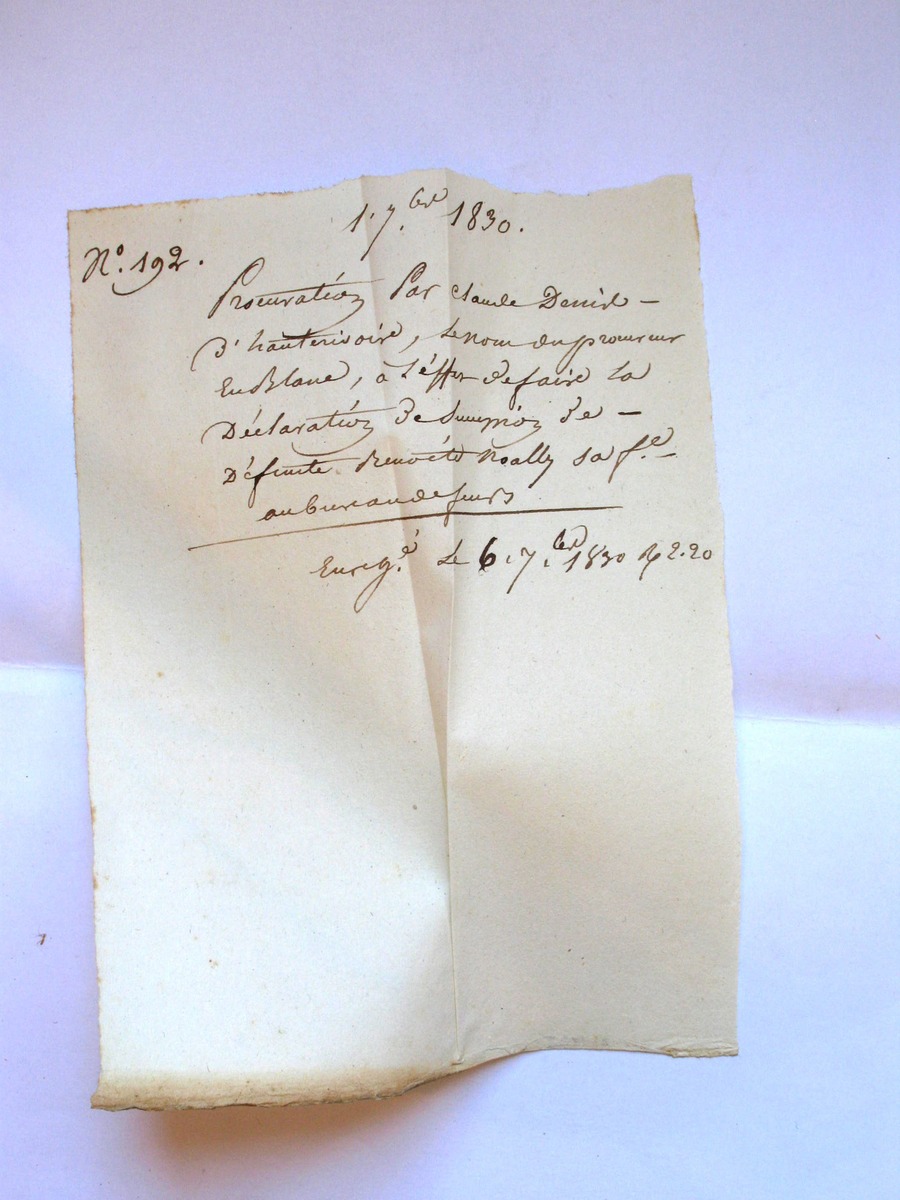 1. 7.bre 1830.
N.o 192.
Procuration Par Claude Denis –
d'hauterivoire, Le nom du procureur
En Blanc, à L'éffet de faire la
Déclaration de Succession de –
Défunte Benoite Noally sa f.e –
au bureau de feurs
Enreg.é Le 6. 7.bre 1830 R 2.20